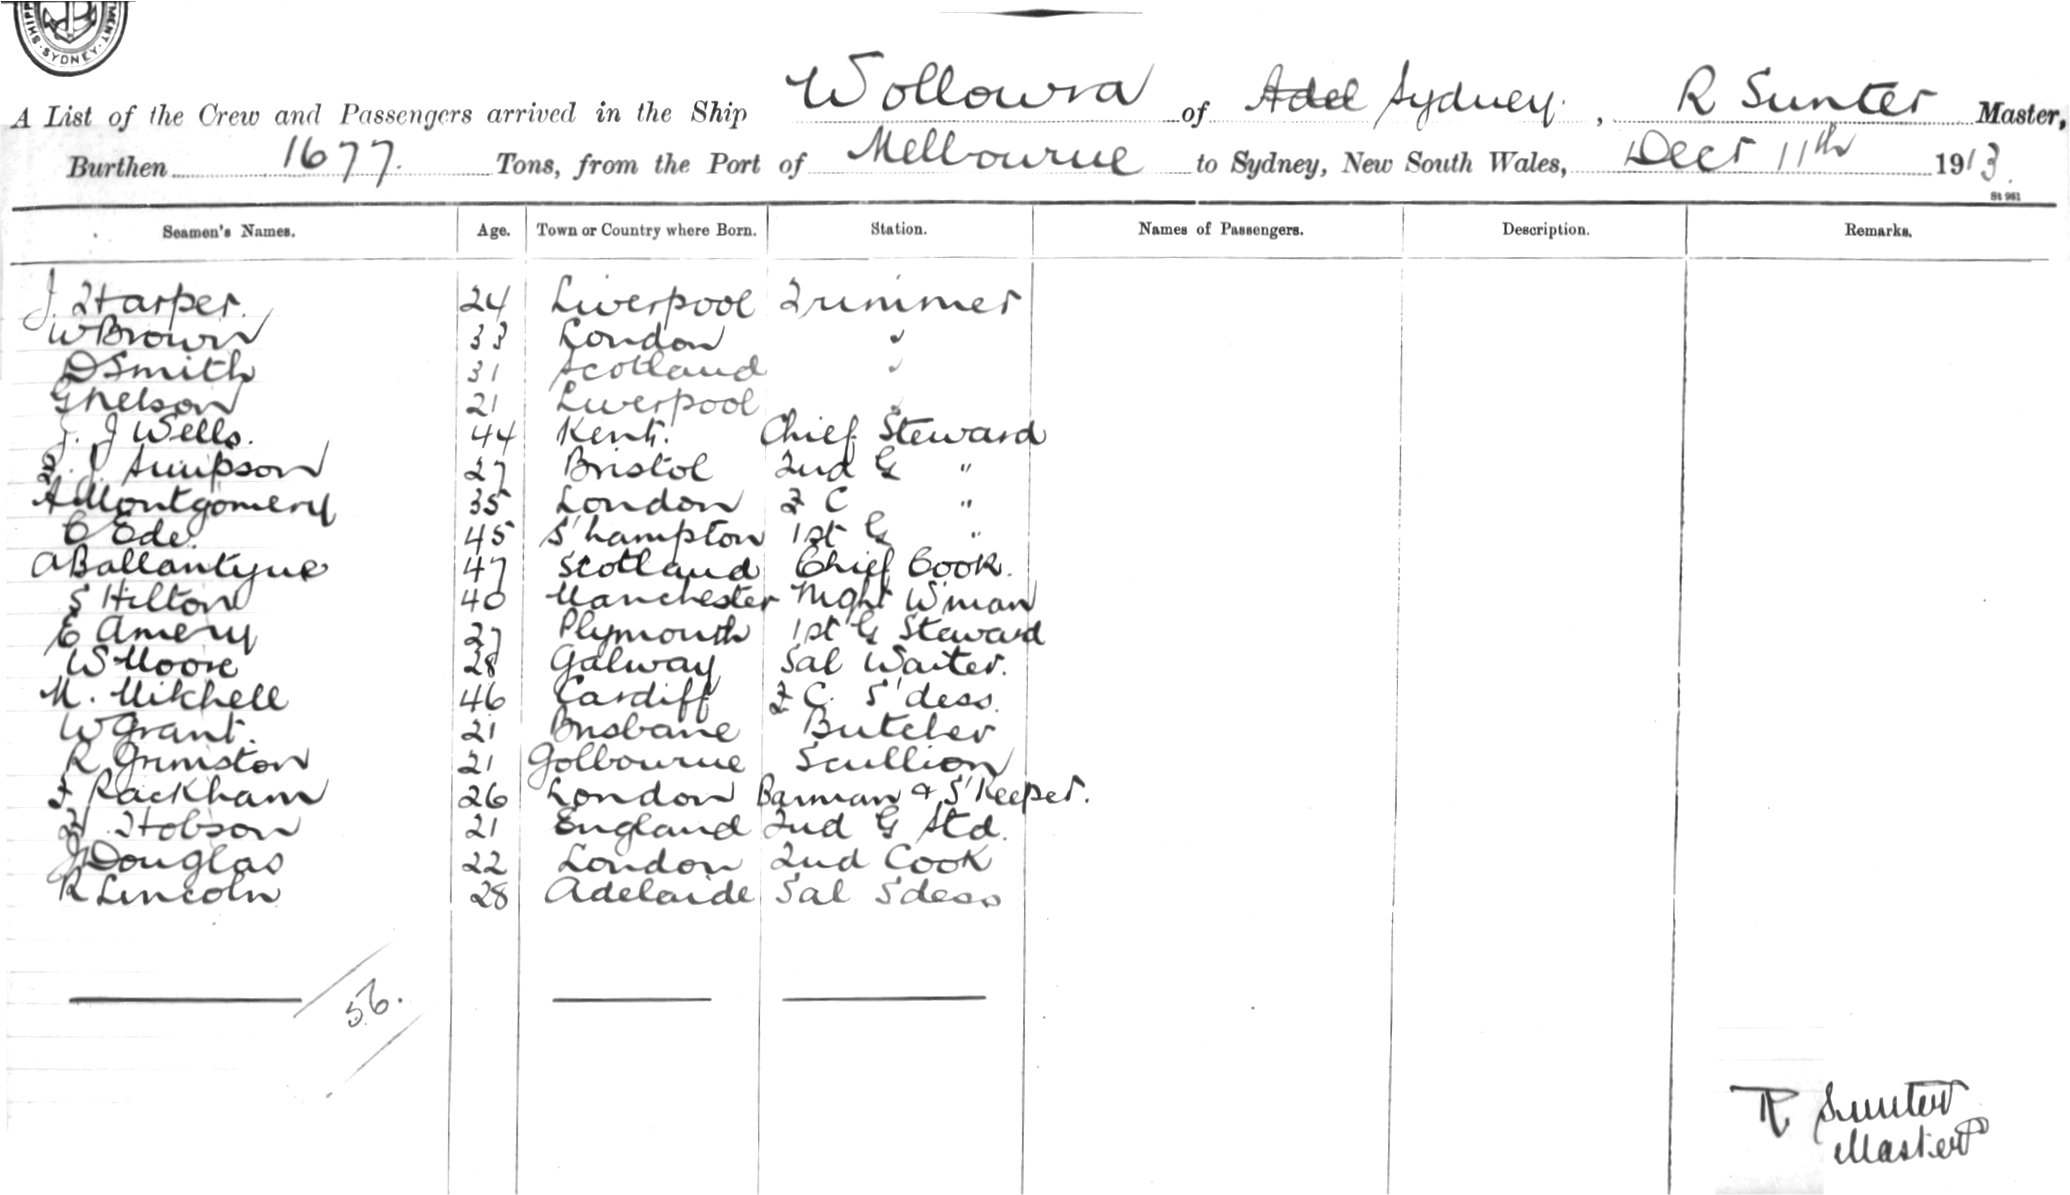 SHIPP MENT · SYDNEY ·
A List of the Crew and Passengers arrived in the Ship Wollowra of Adel Sydney, R Sunter Master,
Burthen 1677. Tons, from the Port of Melbourne to Sydney, New South Wales, Decr 11th 1913.
St 961
Seamen's Names. Age. Town or Country where Born. Station. Names of Passengers. Description. Remarks.
J. Harper. 24 Liverpool Trimmer
W Brown 33 London "
D Smith 31 Scotland "
G Nelson 21 Liverpool "
J. J Wells. 44 Kent. Chief Steward
J Simpson 27 Bristol 2nd G "
A Montgomery 35 London F C "
C Ede. 45 S'hampton 1st G "
A Ballantyne 47 Scotland Chief Cook.
S Hilton 40 Manchester Night W'man
E Amery 27 Plymouth 1st G Steward
W Moore 28 Galway Sal Waiter.
M. Mitchell 46 Cardiff F C. S'dess.
W Grant. 21 Brisbane Butcher
R Grimston 21 Golbourne Scullion
F Rackham 26 London Barman & S'Keeper.
H Hobson 21 England 2nd G Std.
J Douglas 22 London 2nd Cook
R Lincoln 28 Adelaide Sal Sdess
56.
R Sunter
Master